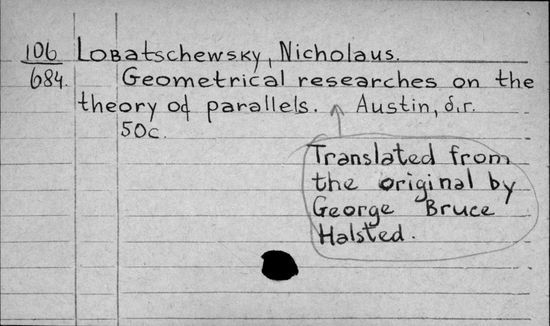 106 Lobatschewsky, Nicholaus.
684. Geometrical researches on the
theory of parallels. ↑ Austin, s.r.
50c.
Translated from
the original by
George Bruce
Halsted.